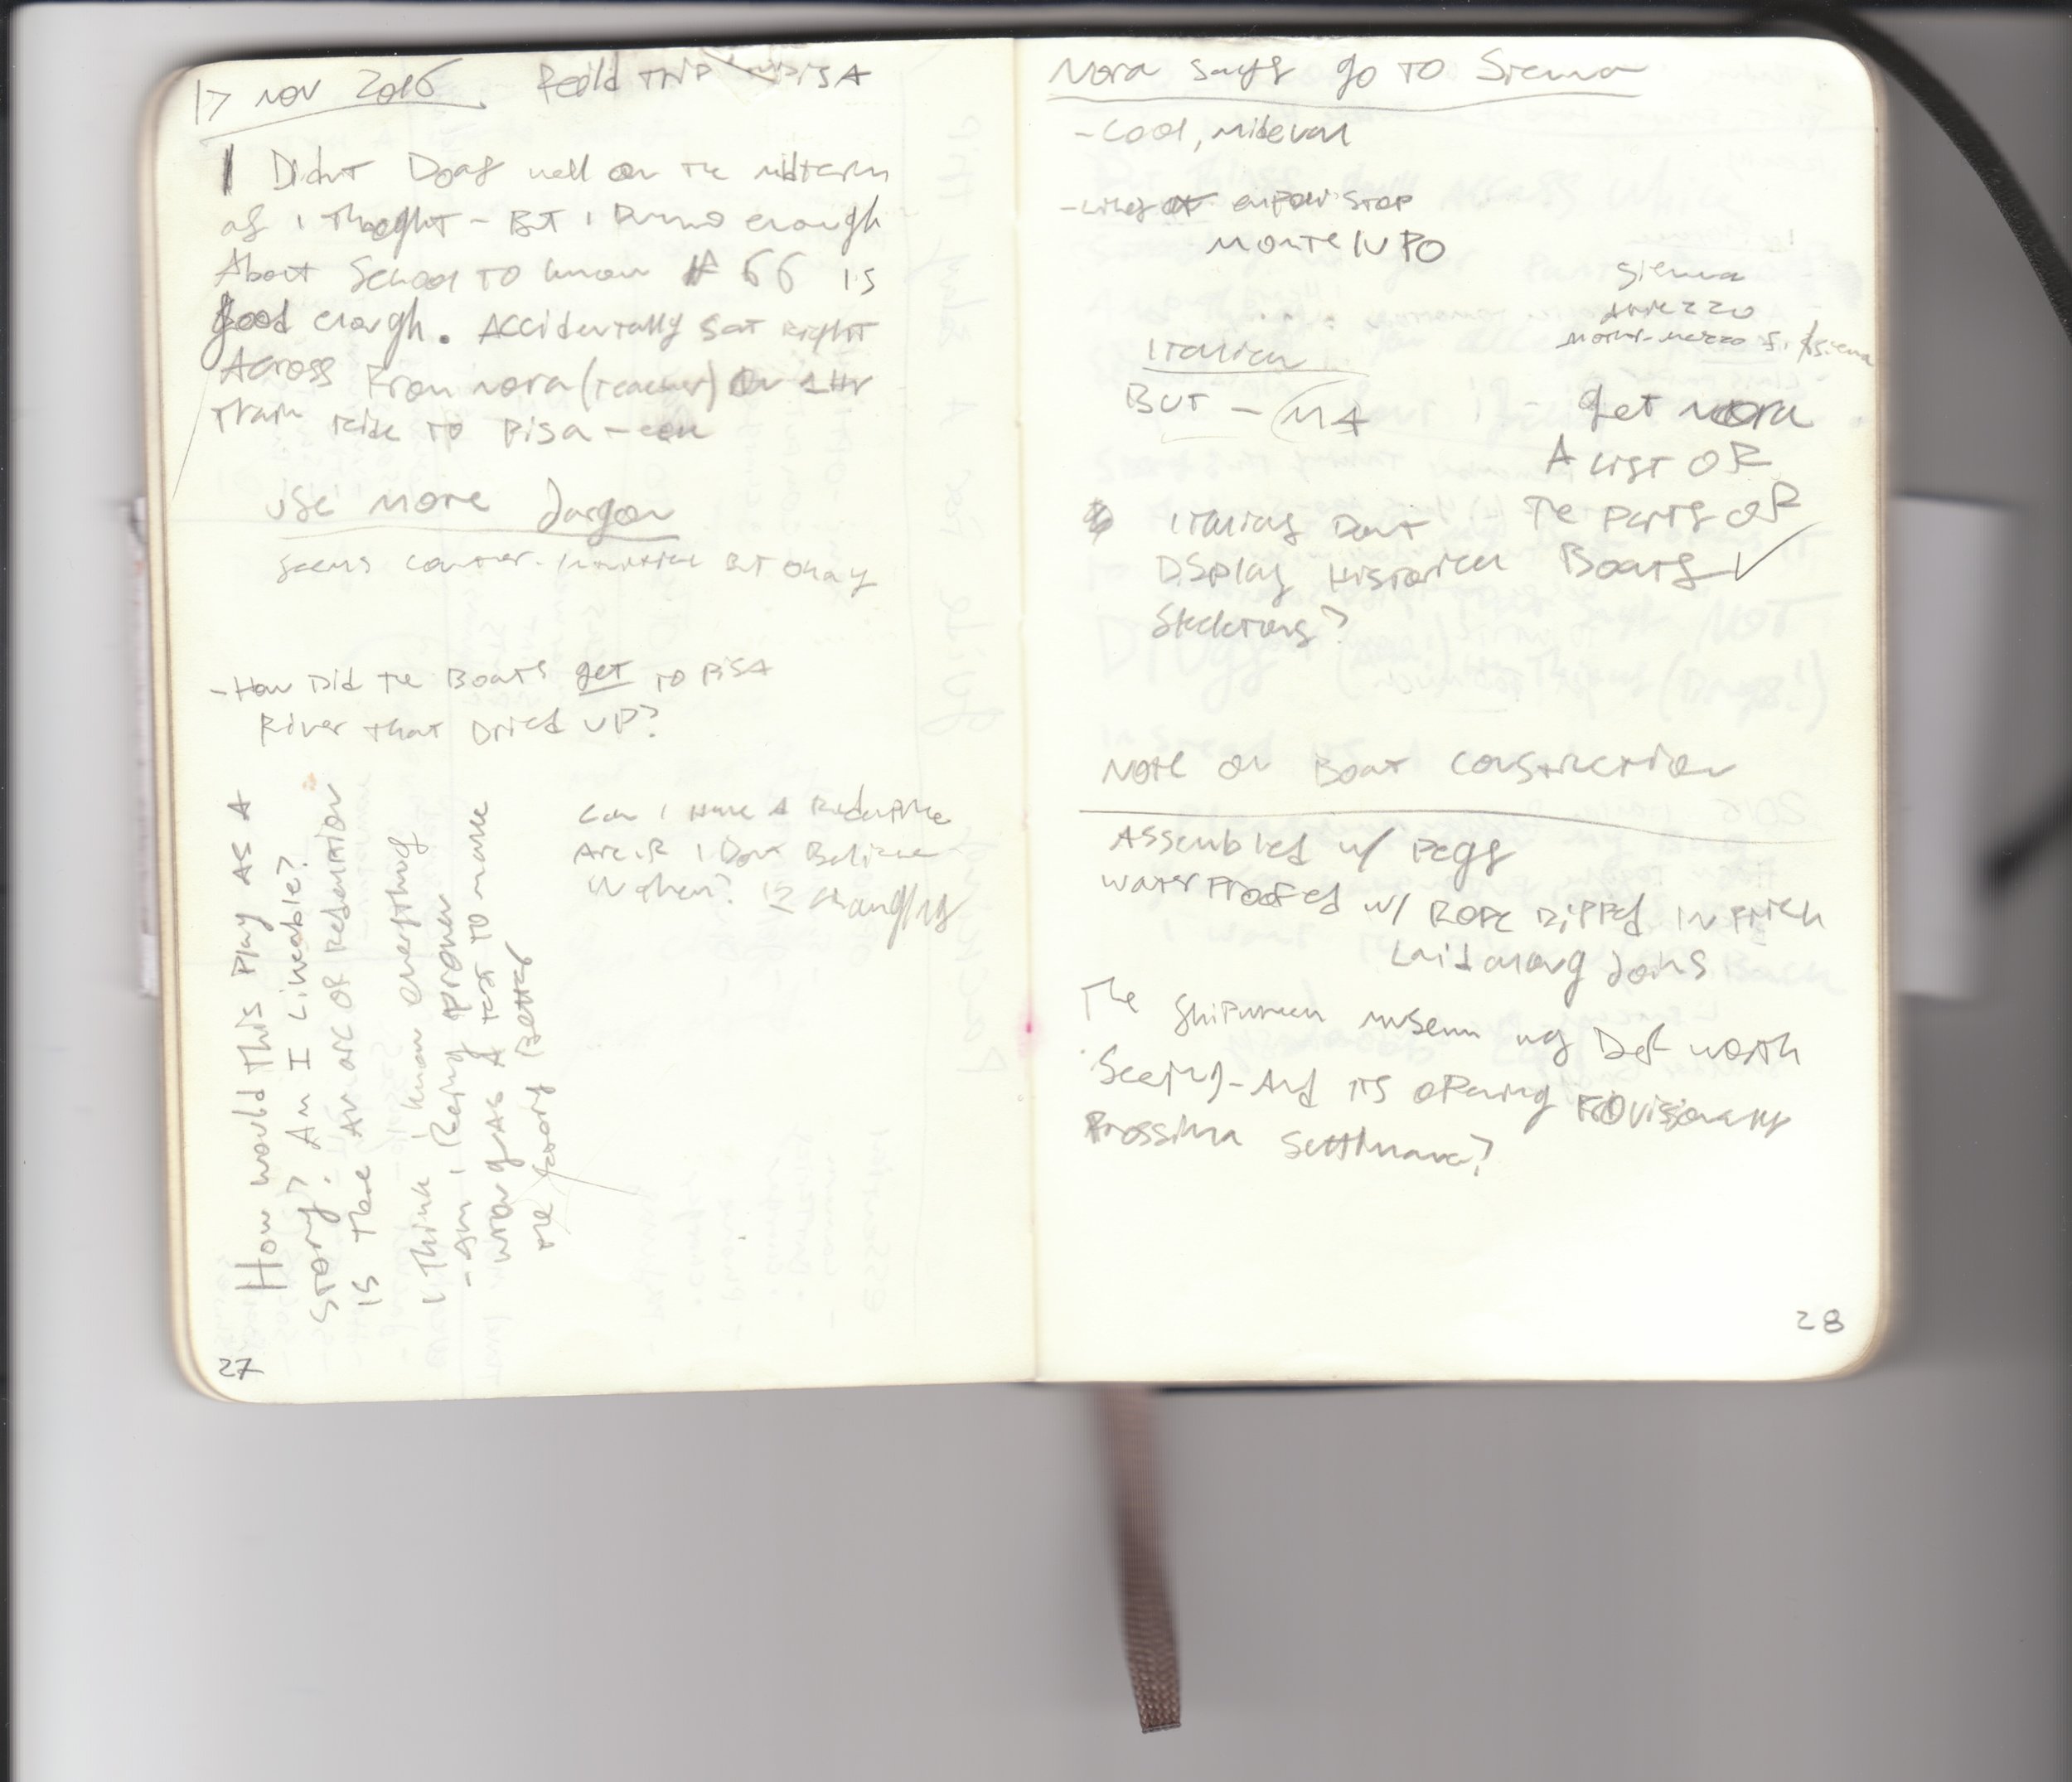 17 Nov 2016 Feild Trip Pisa
I Didnt Doas well on the midterm
as I Thooght - But I Dunno enough
About School to know # 66 is
good enough. Accidentally sat right
Across From nora (teacher) on 1 Hr
train ride to Pisa -
use more Jargon
seems counter- But okay
- How Did the Boats get to Pisa
River that Dried up?
How would this Play AS A
story? Am I Likeable?
is there An arc of Redemtion
I Think I know everything
- am I Being proven
wrong AS A test to make
me story Better
Can I Have A Redemptive
Arc if I Dont Believe
27
Nora says go to Sienna
- Cool, mideval
- Empoli stop
Montelupo
Sienna
Arrezzo
Italian
But - MA
- get nora
A list of
The parts of
Boats ✓
Italians Dont
Display Historical
Skeletons?
Note on Boat construction
Assembled w/ Pegs
waterproofed w/ Rope Dipped in Pitch
Laid along Joins
The Shipwreck musem Def worth
Seeing - And its opening
Prossima Settimana?
28